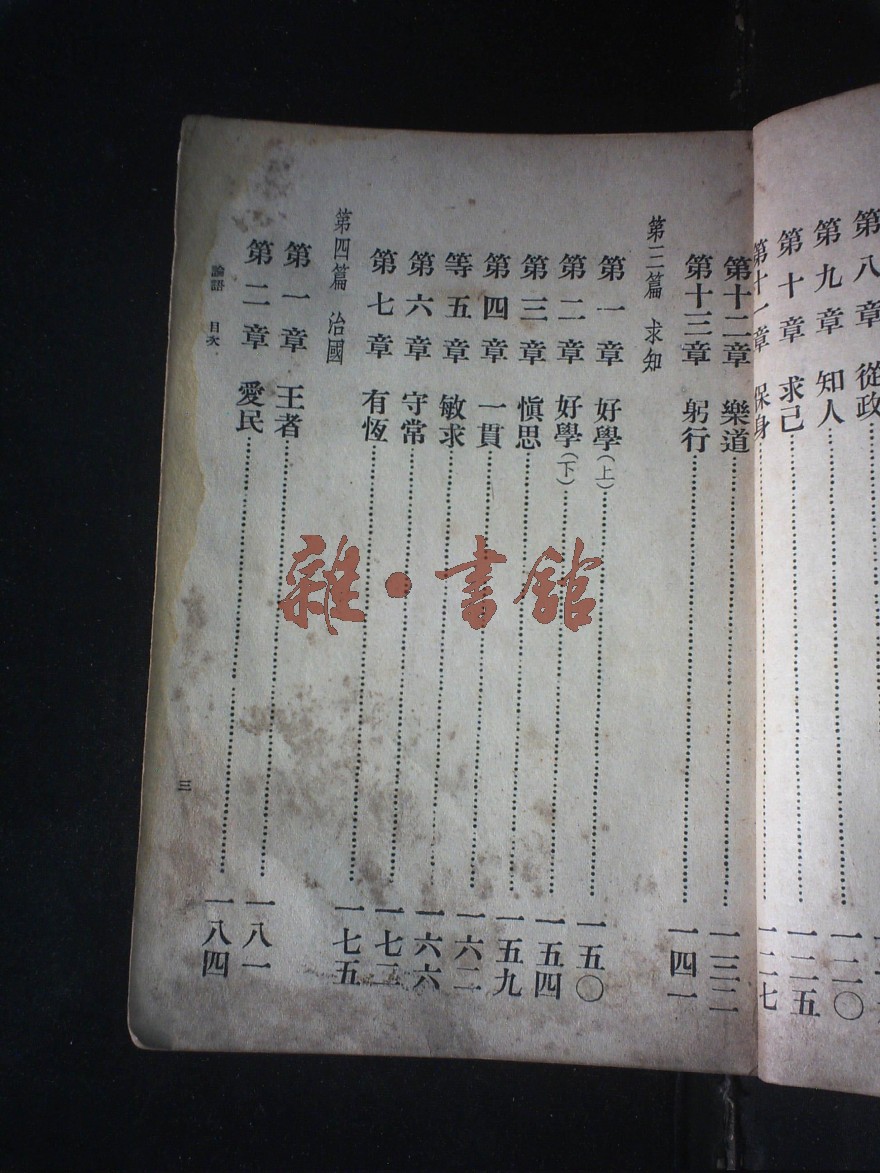 第八章 從政………
第九章 知人………一二〇
第十章 求己………一二五
第十一章 保身………一二七
第十二章 樂道………一三二
第十三章 躬行………一四一
第三篇 求知
第一章 好學(上)………一五〇
第二章 好學(下)………一五四
第三章 愼思………一五九
第四章 一貫………一六二
等五章 敏求………一六六
第六章 守常………
第七章 有恆………一七五
第四篇 治國
第一章 王者………一八一
第二章 愛民………一八四
論語 目次
三
雜·書館